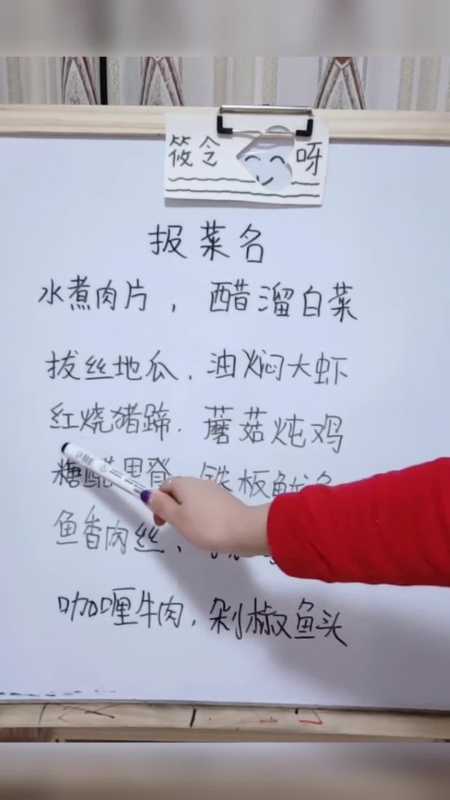 筱令 呀
报菜名
水煮肉片，醋溜白菜
拔丝地瓜、油焖大虾
红烧猪蹄、蘑菇炖鸡
糖醋里脊、铁板鱿鱼
鱼香肉丝、
咖喱牛肉、剁椒鱼头